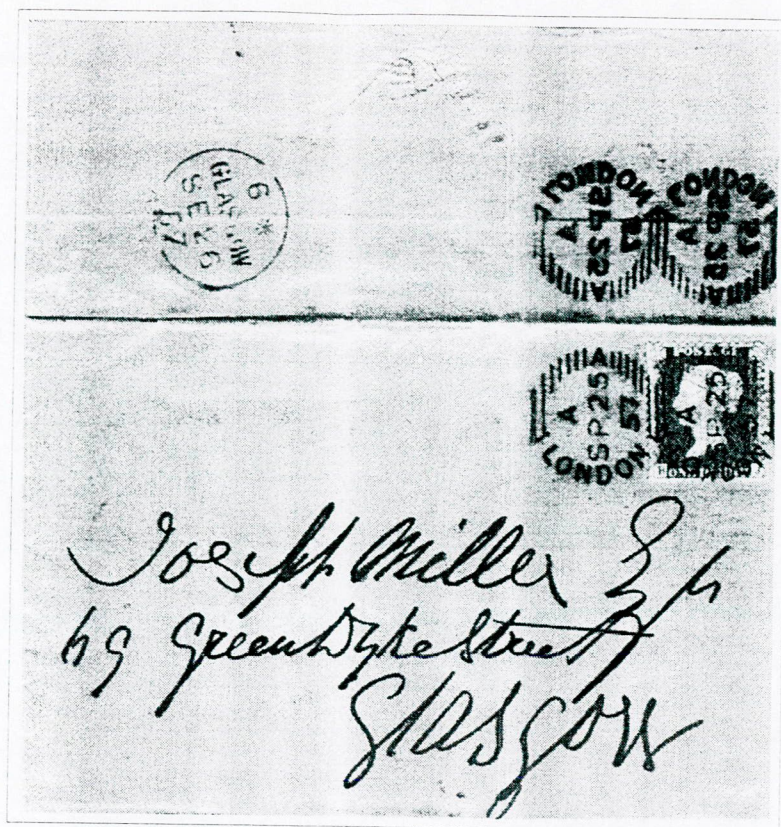 6 *
GLASGOW
SE 26
57
LONDON
A
SP 25
57
LONDON
A
SP 25
57
A
A
SP 25
57
LONDON
A
SP 25
Joseph Miller Esq
69 Green Dyke Street
Glasgow